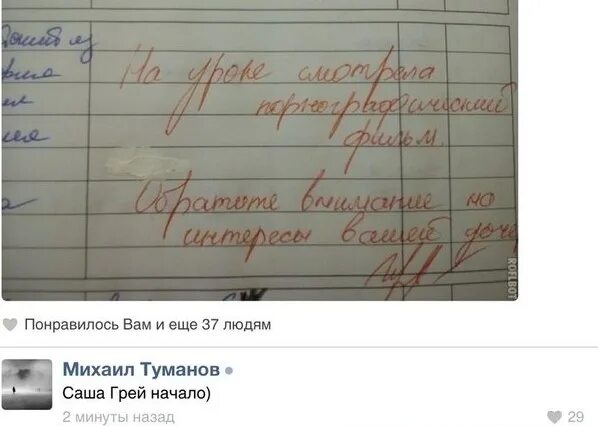 На уроке смотрела
порнографический
фильм.
Обратите внимание на
интересы вашей доче
ROFLBOT
Понравилось Вам и еще 37 людям
Михаил Туманов
Саша Грей начало)
2 минуты назад
29